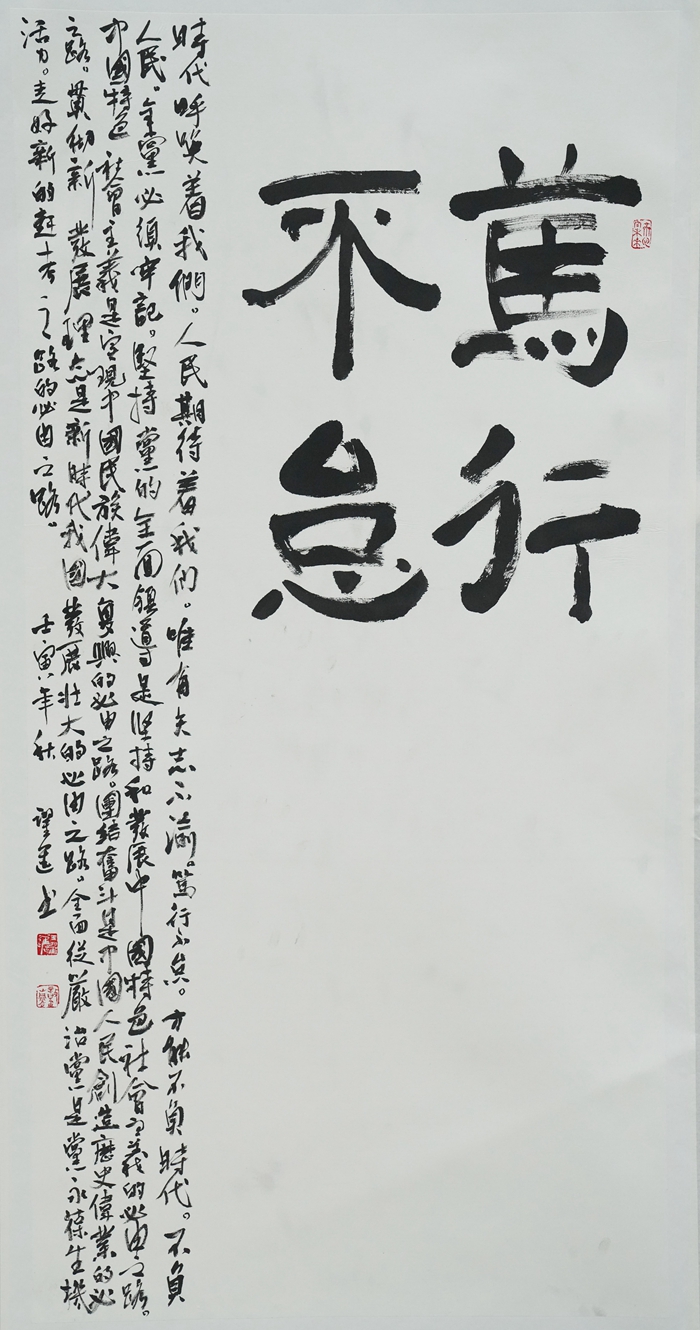 篤行
不怠
時代呼喚着我們。人民期待着我们。唯有矢志不渝。篤行不怠。方能不負時代。不負
人民。全黨必須牢記。堅持黨的全面領導是坚持和發展中國特色社會主義的必由之路。
中國特色社會主義是实現中國民族偉大复興的必由之路。團结奮斗是中國人民創造歷史偉業的必
之路。貫彻新發展理念是新时代我國發展壮大的必由之路。全面從嚴治黨是黨永葆生機
活力。走好新的赶考之路的必由之路。
壬寅年秋